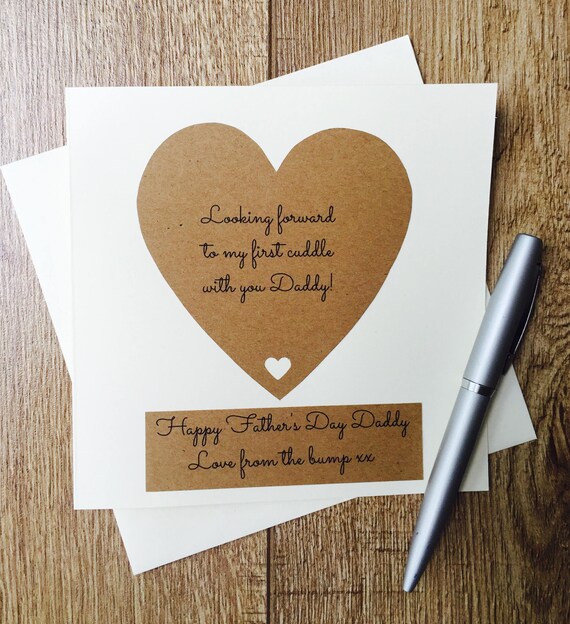 Looking forward
to my first cuddle
with you Daddy!
Happy Father's Day Daddy
Love from the bump xx